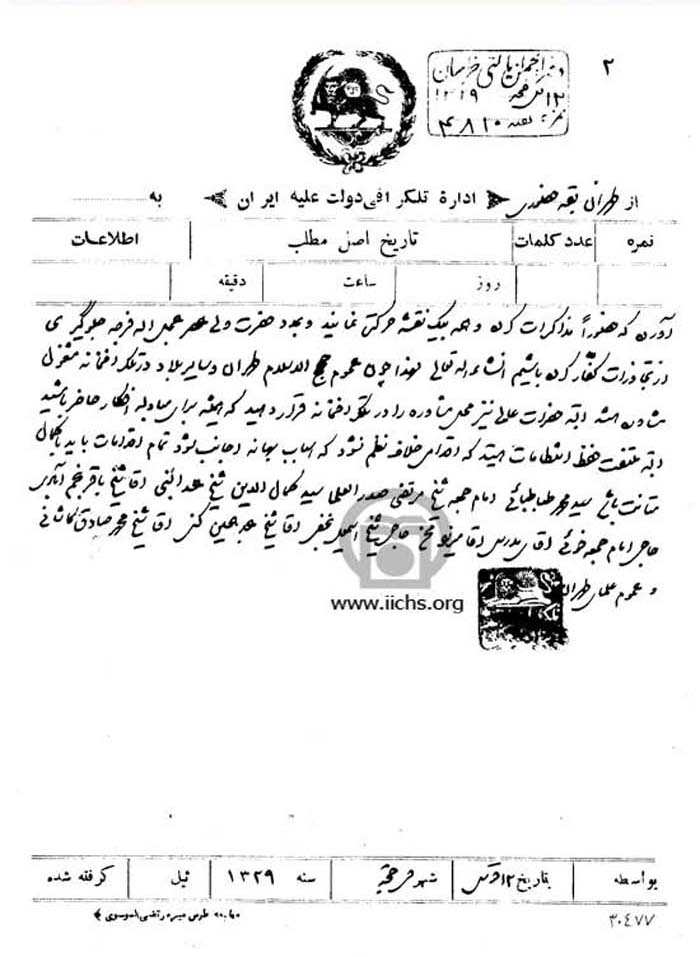 ۲
دفتر انجمن ایالتی خراسان
۱۲ ذی حجه ۱۳۲۹
نمره ۴۸۱۰
از طهران بقیه حضوری ادارۀ تلگرافی دولت علیه ایران به
نمره عدد کلمات تاریخ اصل مطلب اطلاعات
روز ساعت دقیقه
آورن که حضوراً مذاکرات کرده و همه بیک نقشه حرکت نمایند و بمدد حضرت ولی عصر عجل اله فرجه جلوگیری
از تجاوزات کفار کرده باشیم انشاءاله تعالی لهذا چون عموم حجج الاسلام طهران و سایر بلاد در تلگرافخانه مشغول
مشاوره هستند البته حضرات عالی نیز محل مشاوره را در تلگرافخانه قرار دهید که همیشه برای مبادله افکار حاضر باشید
البته ملتفت حفظ انتظامات هستید که اقدامی خلاف نظم نشود که اسباب بهانه اجانب بشود تمام اقدامات باید با کمال
متانت باشد سید محمد طباطبائی امام جمعه شیخ مرتضی صدرالعلما سید کمال الدین شیخ عبدالنبی اقا شیخ باقر نجم آبادی
حاجی امام جمعه خوئی اقای مدرس اقا میرزا حاجی شیخ اسمعیل اقا شیخ عبدالحسین اقا شیخ محمد صادق کاشانی
و عموم علمای طهران
www.iichs.org
بواسطه بتاریخ ۱۲ قوس شهر ذیحجه سنه ۱۳۲۹ ئیل گرفته شده
۳۰۴۷۷